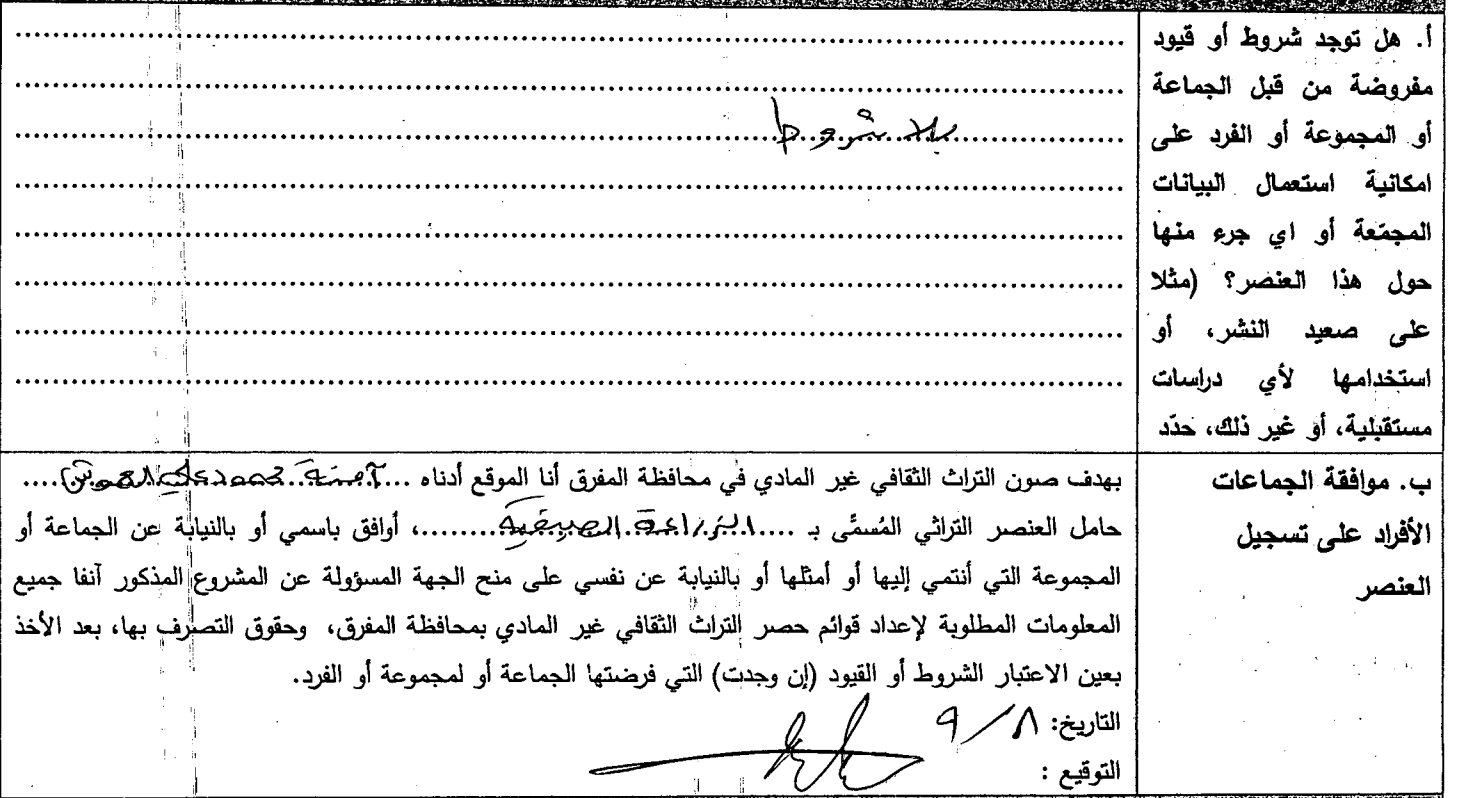 أ. هل توجد شروط أو قيود
مفروضة من قبل الجماعة
أو المجموعة أو الفرد على
امكانية استعمال البيانات
المجمّعة أو اي جرء منها
حول هذا العنصر؟ (مثلا
على صعيد النشر، أو
استخدامها لأي دراسات
مستقبلية، أو غير ذلك، حدّد
بلا شروط
ب. موافقة الجماعات
الأفراد على تسجيل
العنصر
بهدف صون التراث الثقافي غير المادي في محافظة المفرق أنا الموقع أدناه ...آمنة
حامل العنصر التراثي المُسمَّى بـ .....الزراعة الصيفية.........، أوافق باسمي أو بالنيابة عن الجماعة أو
المجموعة التي أنتمي إليها أو أمثلها أو بالنيابة عن نفسي على منح الجهة المسؤولة عن المشروع المذكور آنفا جميع
المعلومات المطلوبة لإعداد قوائم حصر التراث الثقافي غير المادي بمحافظة المفرق، وحقوق التصرف بها، بعد الأخذ
بعين الاعتبار الشروط أو القيود (إن وجدت) التي فرضتها الجماعة أو لمجموعة أو الفرد.
التاريخ: ٩/٨
التوقيع :